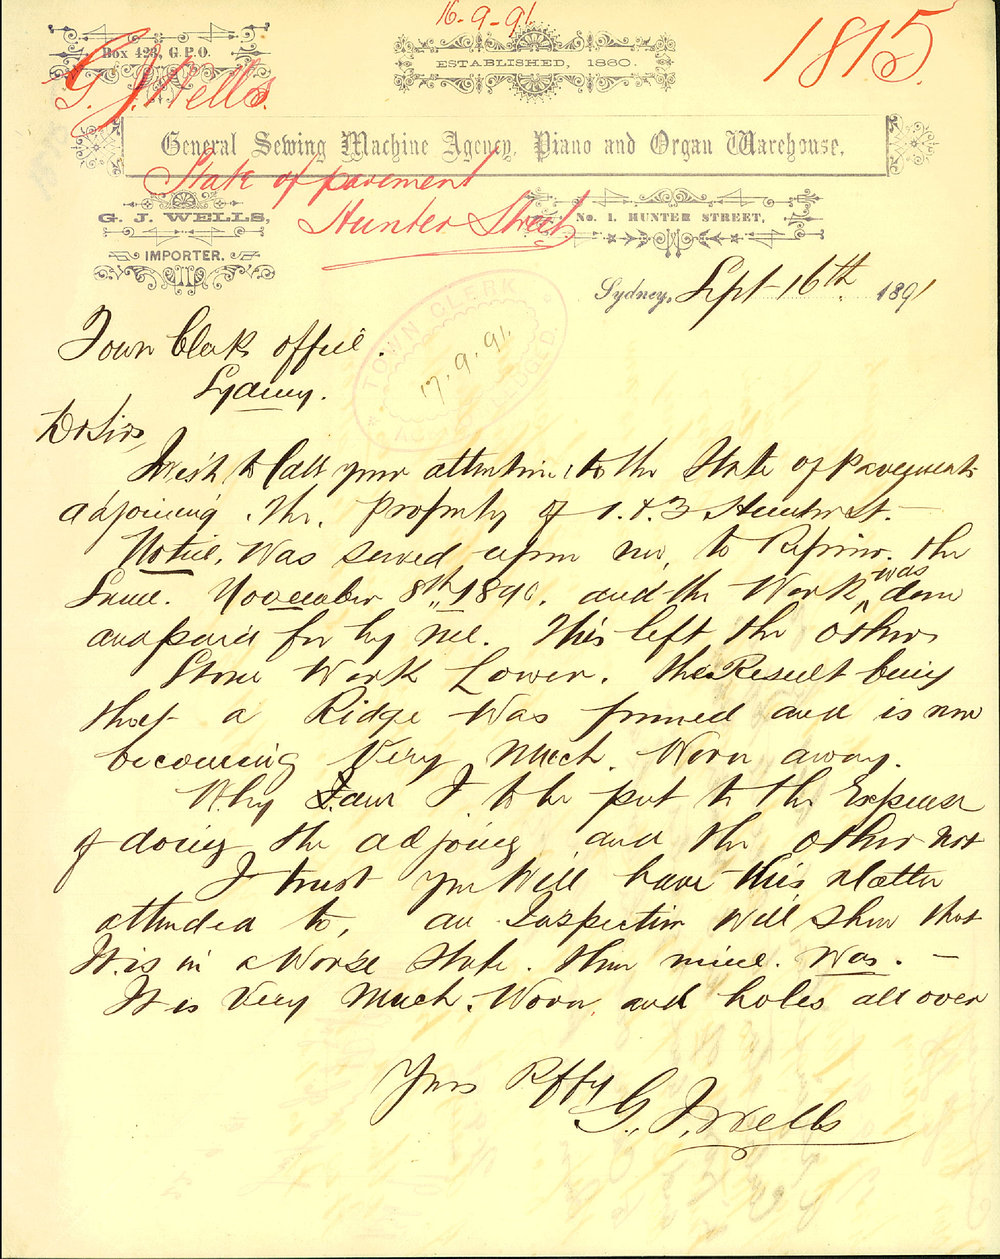 16-9-91
1815
Box 423, G.P.O.
ESTABLISHED, 1860.
G. J. Wells.
General Sewing Machine Agency, Piano and Organ Warehouse.
State of pavement
Hunter Street
G. J. WELLS,
IMPORTER.
No. 1. HUNTER STREET,
Sydney, Sept 16th 1891
TOWN CLERK
17.9.91
Town Clerks office.
Sydney.
Dr Sirs,
I wish to Call your attention to the State of Pavements
adjoining the Property of 1. & 3 Hunter St. -
Notice, Was served upon me, to Repair the
Same. November 8th 1890. and the Work was done
and paid for by me. This left the others
Stone Work Lower. the Result being
that a Ridge Was formed and is now
becoming Very Much Worn away.
Why am I to be put to the Expense
of doing the adjoing and the other not
I trust you Will have this Matter
attended to, an Inspection Will show that
It is in a Worse State than mine Was. -
It is Very Much Worn and holes all over
Yours Rffy
G. J. Wells